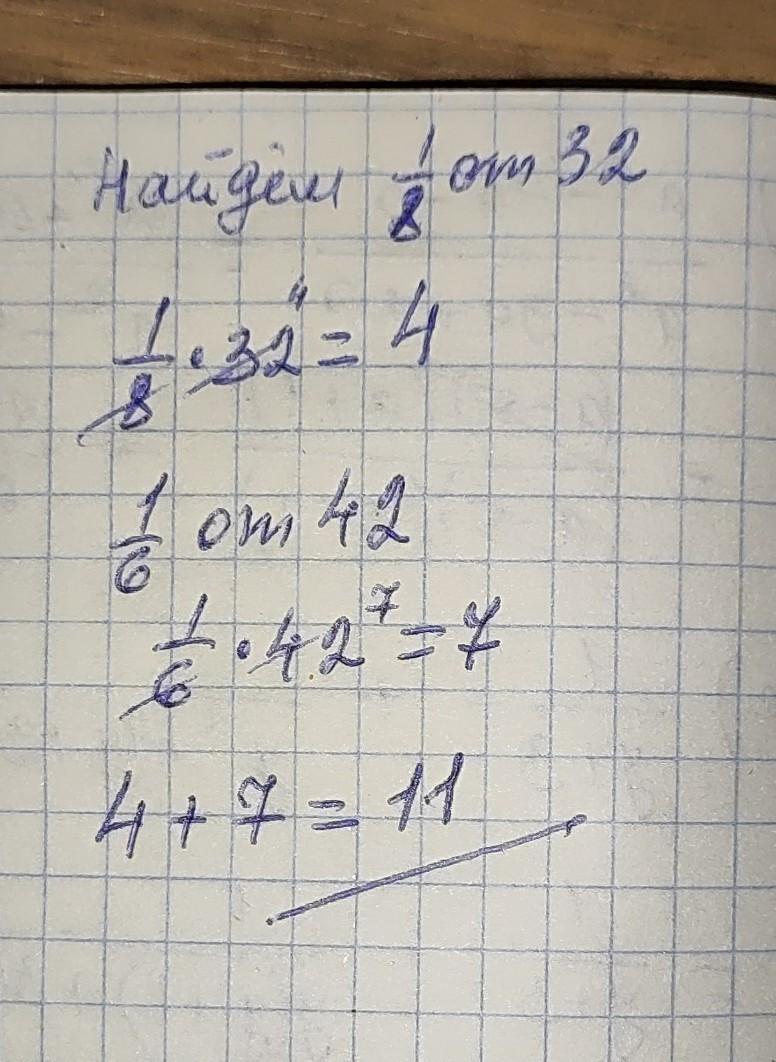 Найдём 1/8 от 32
1/8 · 32 4 = 4
1/6 от 42
1/6 · 42 7 = 7
4 + 7 = 11